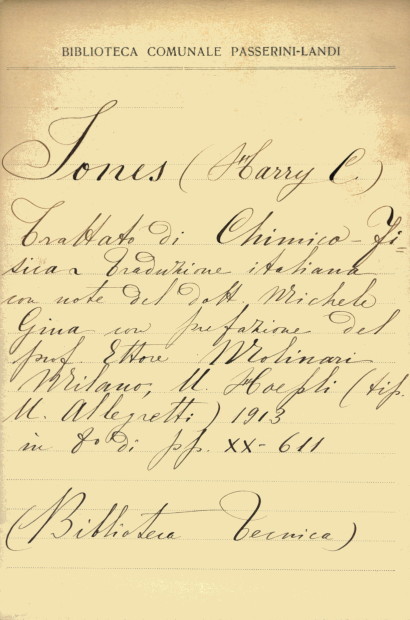 BIBLIOTECA COMUNALE PASSERINI-LANDI
Jones (Harry C.)
Trattato di Chimico-Fi=
sica Traduzione italiana
con note del dott. Michele
Giua con prefazione del
prof. Ettore Molinari
Milano, U. Hoepli (tip.
U. Allegretti) 1913
in 8° di pp. XX-611
(Biblioteca Tecnica)